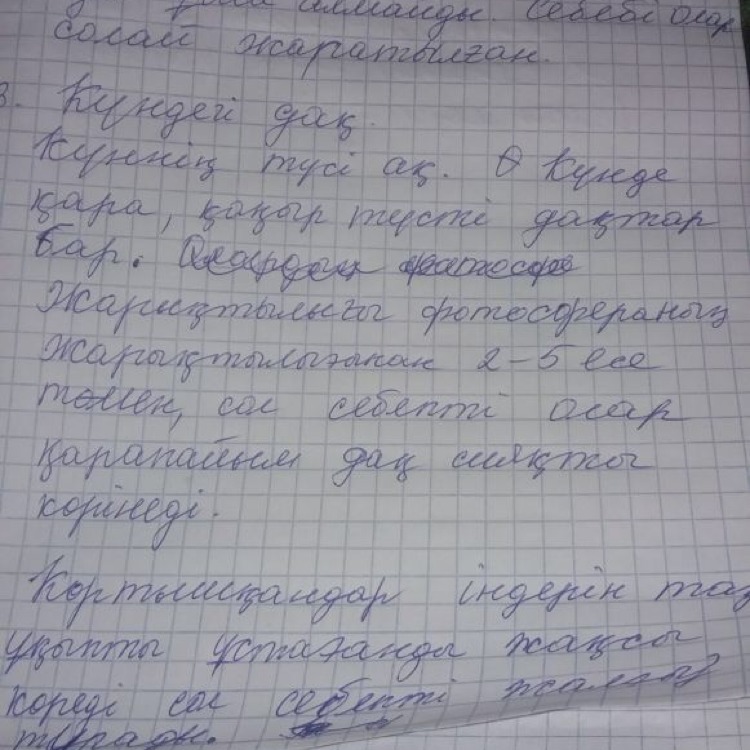 алмайды. Себебі олар
солай жаратылған.
3. Күндегі дақ.
Күннің түсі ақ. Күнде
қара, қоңыр түсті дақтар
бар. Олардың фотосфе
Жарықтылығы фотосфераның
жарықтылығынан 2-5 есе
төмен, сол себепті олар
қарапайым дақ сияқты
көрінеді.
Көртышқандар індерін таз
ұқыпты ұстағанды жақсы
көреді сол себепті жалғыз
тұрады.